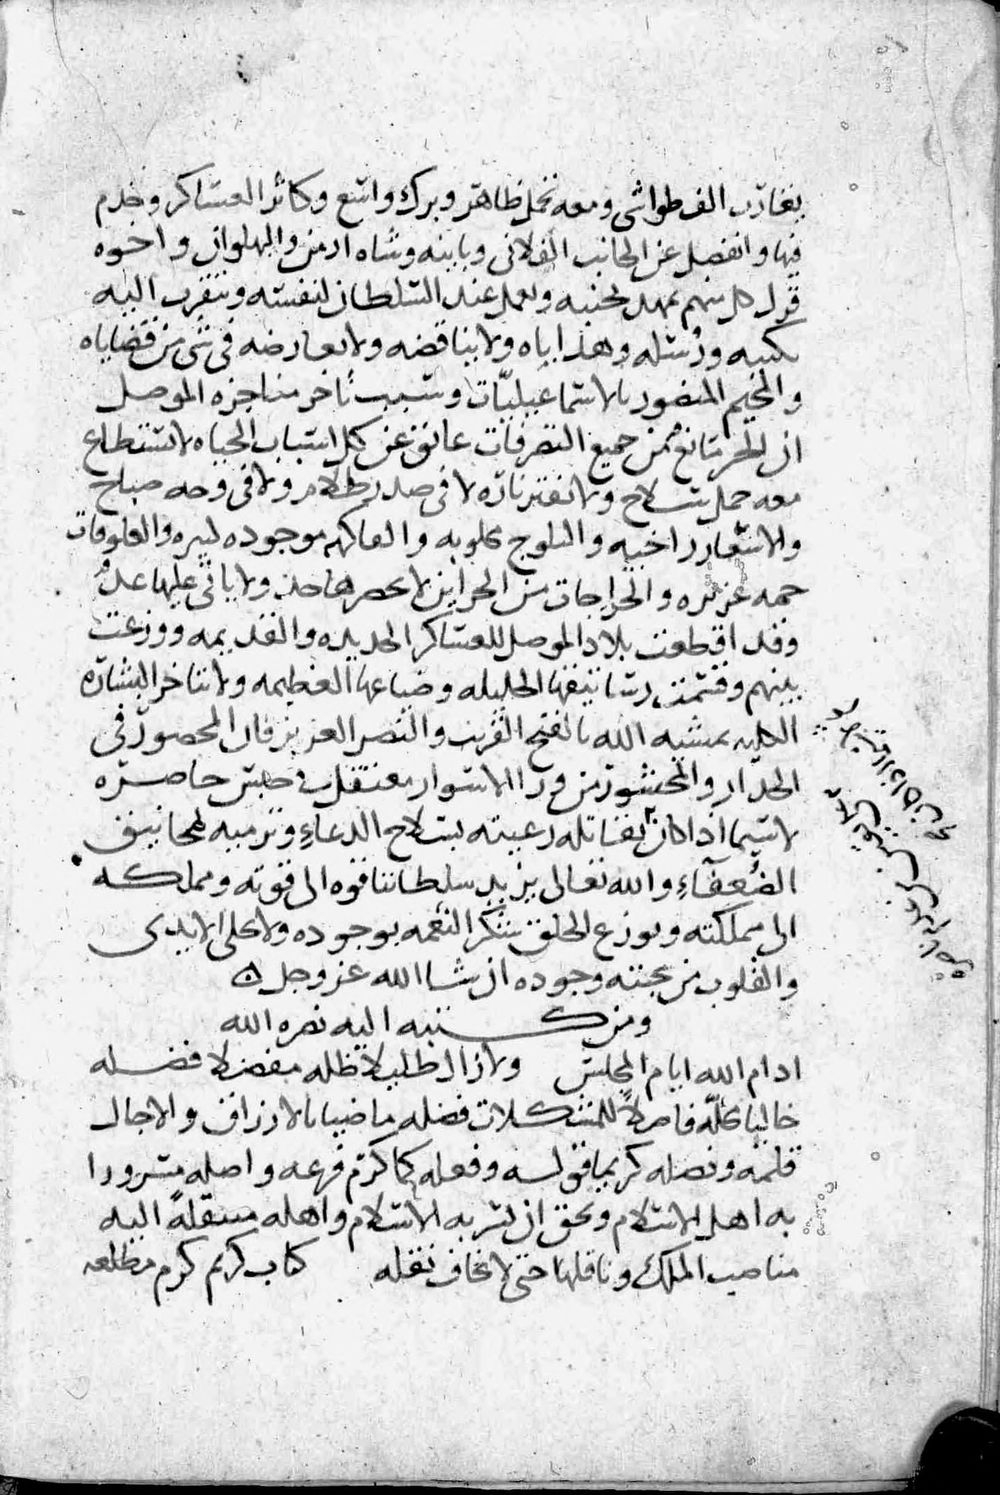 يقارب الف طواشى ومعه تجمل ظاهر وبرك واسع وكاثر العساكر وخدم
فيها وانفصل عن الجانب الفلانى وبابنه وشاه ارمن والبهلوان واخوه
قزل كل منهم يمهد بجنبه ويعمل عند السلطان لنفسه ويتقرب اليه
بكتبه ورسله وهذا اياه ولا يناقضه ولا يعارضه فى شى من قضاياه
والمخيم المنصور بالاسماعيليات وسبب تأخر مناجزه الموصل
ان الحر مانع من جميع التصرفات عائق عن كل اسباب الحياه لا يستطاع
معه حمل سلاح ولا تفتر ناره لا فى صدر ظلام ولا فى وجه صباح
والاسعار رخيه والثلوج مجلوبه والفاكهه موجوده كثيره والعلوفات
جمه غزيره والخراجات من الخزاين لا يحصرها حد ولا ياتى عليها عدّ
وقد اقطعت بلاد الموصل للعساكر الجديده والقديمه ووزعت
بينهم وقسمت رساتيقها الجليله وضياعها العظيمه ولا تتاخر البشاره
الجليه بمشيه الله بالفتح القريب والنصر العزيز فان المحصور فى
الجدار والمحشور من ورا الاسوار معتقل فى حبس حاصره
لا سيما اذا كان تقاتله رعيته بسلاح الدعاء وترميه بمجانيق
الضُعفآءِ والله تعالى يزيد سلطاننا قوه الى قوته ومملكه
الى مملكته ويوزع الخلق شكر النعمه بوجوده ولا يخلى الايدى
والقلوب من محبته وجوده ان شا الله عز وجل
ومن كتبه اليه نصره الله
ادام الله ايام المجلس ولا زال طلب لا ظله مفضلا فضله
خاليا كلّه فاصلاً للمشكلات فصله ماضيا بالارزاق والاجال
قلمه ونصله كريما قوله وفعله كما كرم فرعه واصله مسرورا
به اهل الاسلام ويحق ان يسر به الاسلام واهله منتقلةً اليه
مناصب الملك وناقلها حتى لا يخاف نقله كتاب كريم كرم مطلعه